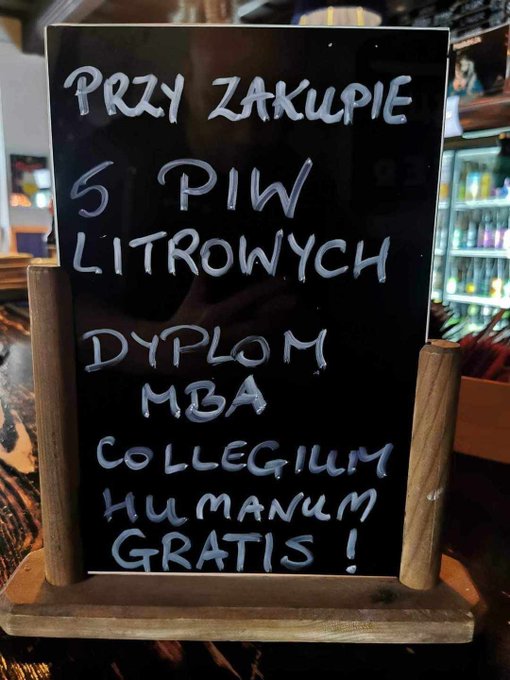 PRZY ZAKUPIE
5 PIW
LITROWYCH
DYPLOM
MBA
COLLEGIUM
HUMANUM
GRATIS!